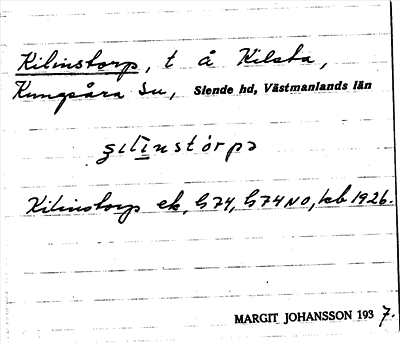 Kilinstorp, t å Kilsta,
Kungsåra sn, Siende hd, Västmanlands län
Kilinstorp ek, G74, G74NO, kb 1926.
MARGIT JOHANSSON 1937.